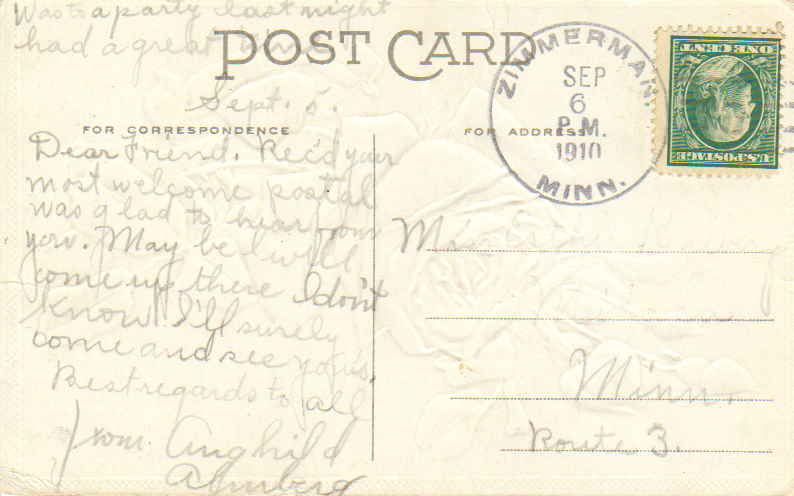 Was to a party last night
had a great time.
POST CARD
Sept. 5.
FOR CORRESPONDENCE
Dear Friend. Rec'd your
most welcome postal
was glad to hear from
you. May be I will
come up there I don't
know. I'll surely
come and see you's.
Best regards to all
from
ZIMMERMAN.
SEP
6
P.M.
1910
MINN.
ONE CENT
U.S. POSTAGE
FOR ADDRESS
Minn.
Route 3.